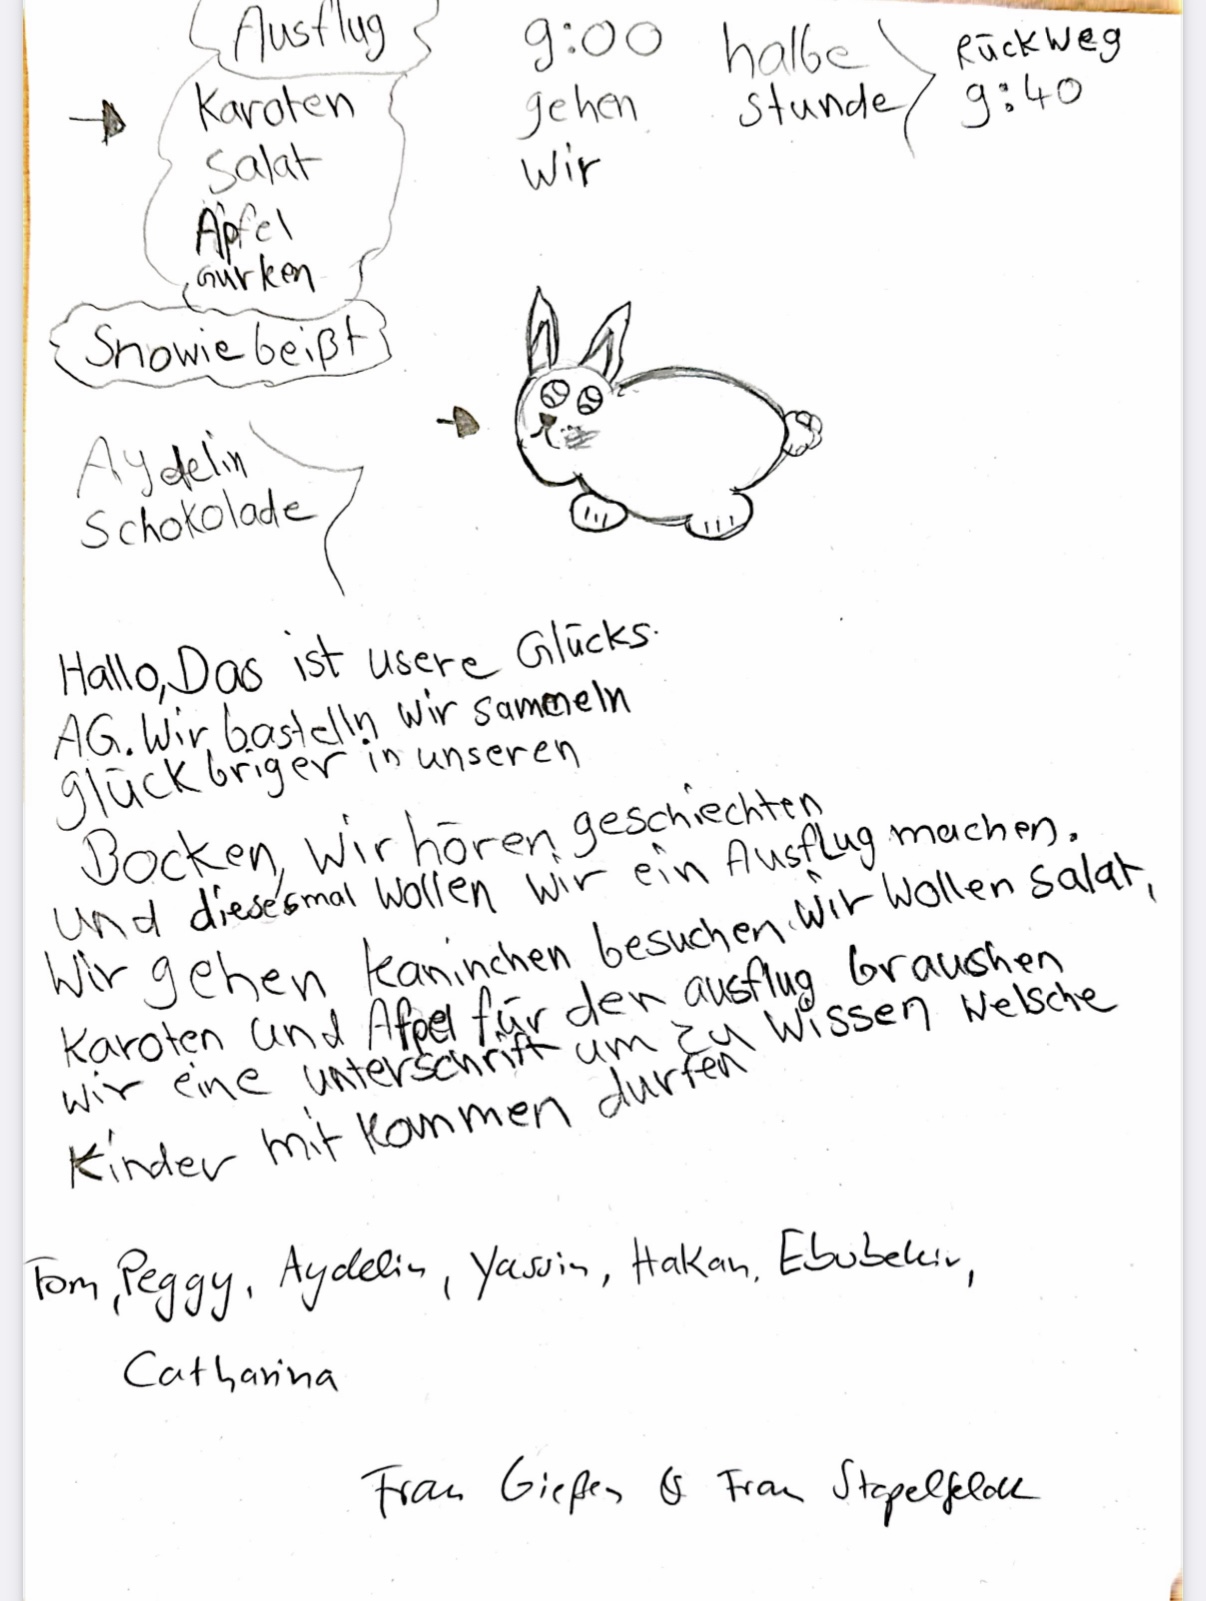 Ausflug
Karoten
Salat
Äpfel
Gurken
Snowie beißt
Aydelin
Schokolade
9:00
gehen
wir
halbe
stunde
Rückweg
9:40
Hallo, Das ist usere Glücks
AG. Wir bastelln wir sammeln
glückbriger in unseren
Bocken, wir hören geschiechten
und diesesmal wollen wir ein Ausflug machen.
Wir gehen kaninchen besuchen. wir wollen salat,
Karoten und Afpel für den ausflug braushen
wir eine unterschrift um zu wissen welsche
Kinder mit kommen durfen
Tom, Peggy, Aydelin, Yassin, Hakan, Ebubekir,
Catharina
Frau Gießen & Frau Stapelfeldt